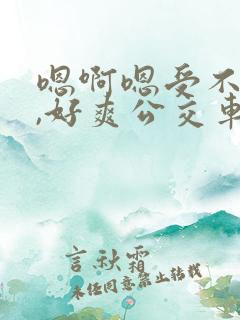 嗯啊嗯受不
,好爽公交车
言秋霜
未经同意禁止转载